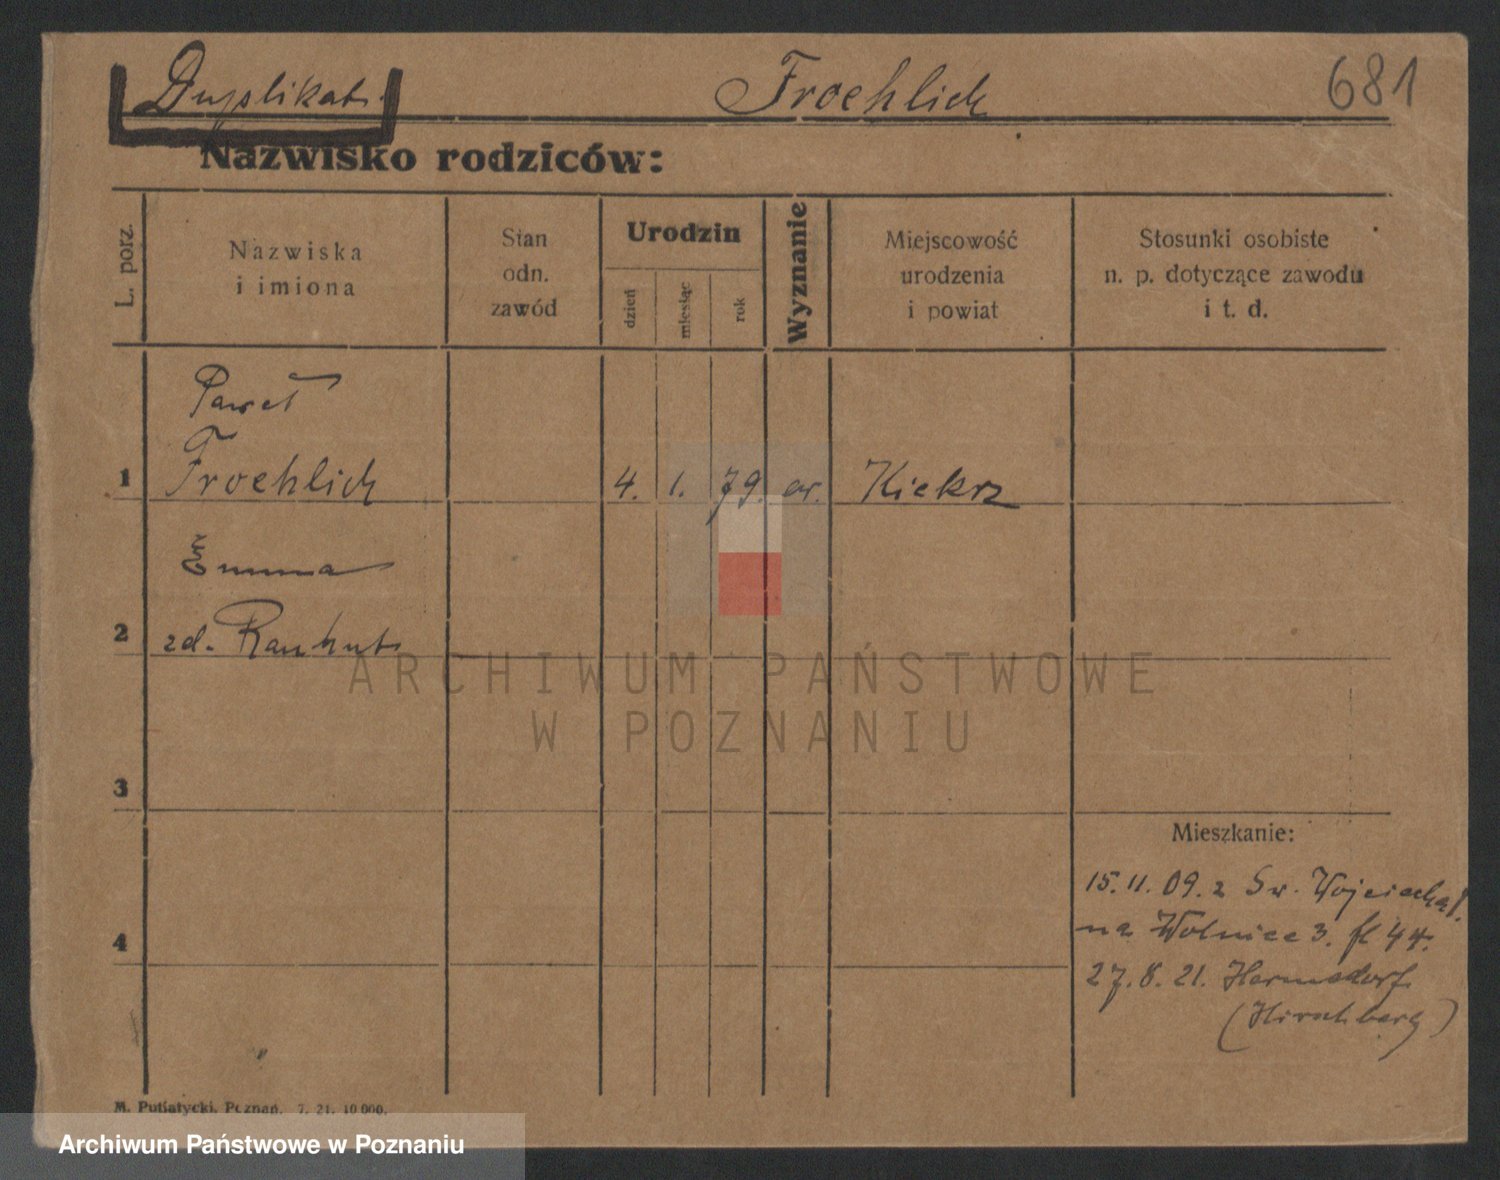 Duplikat. Froehlich 681
Nazwisko rodziców:
L. porz.
Nazwiska
i imiona
Stan
odn.
zawód
Urodzin
dzień
miesiąc
rok
Wyznanie
Miejscowość
urodzenia
i powiat
Stosunki osobiste
n. p. dotyczące zawodu
i t. d.
Paweł
1 Froehlich 4. 1. 79. ew. Kiekrz
Emma
2 zd. Rauhut
ARCHIWUM PAŃSTWOWE
W POZNANIU
3
Mieszkanie:
15. 11. 09. z Św. Wojciecha 1.
4 na Wolnice 3. fl 44.
27. 8. 21. Hermsdorf
(Hirschberg)
M. Putiatycki, Poznań. 7. 21. 10 000.
Archiwum Państwowe w Poznaniu